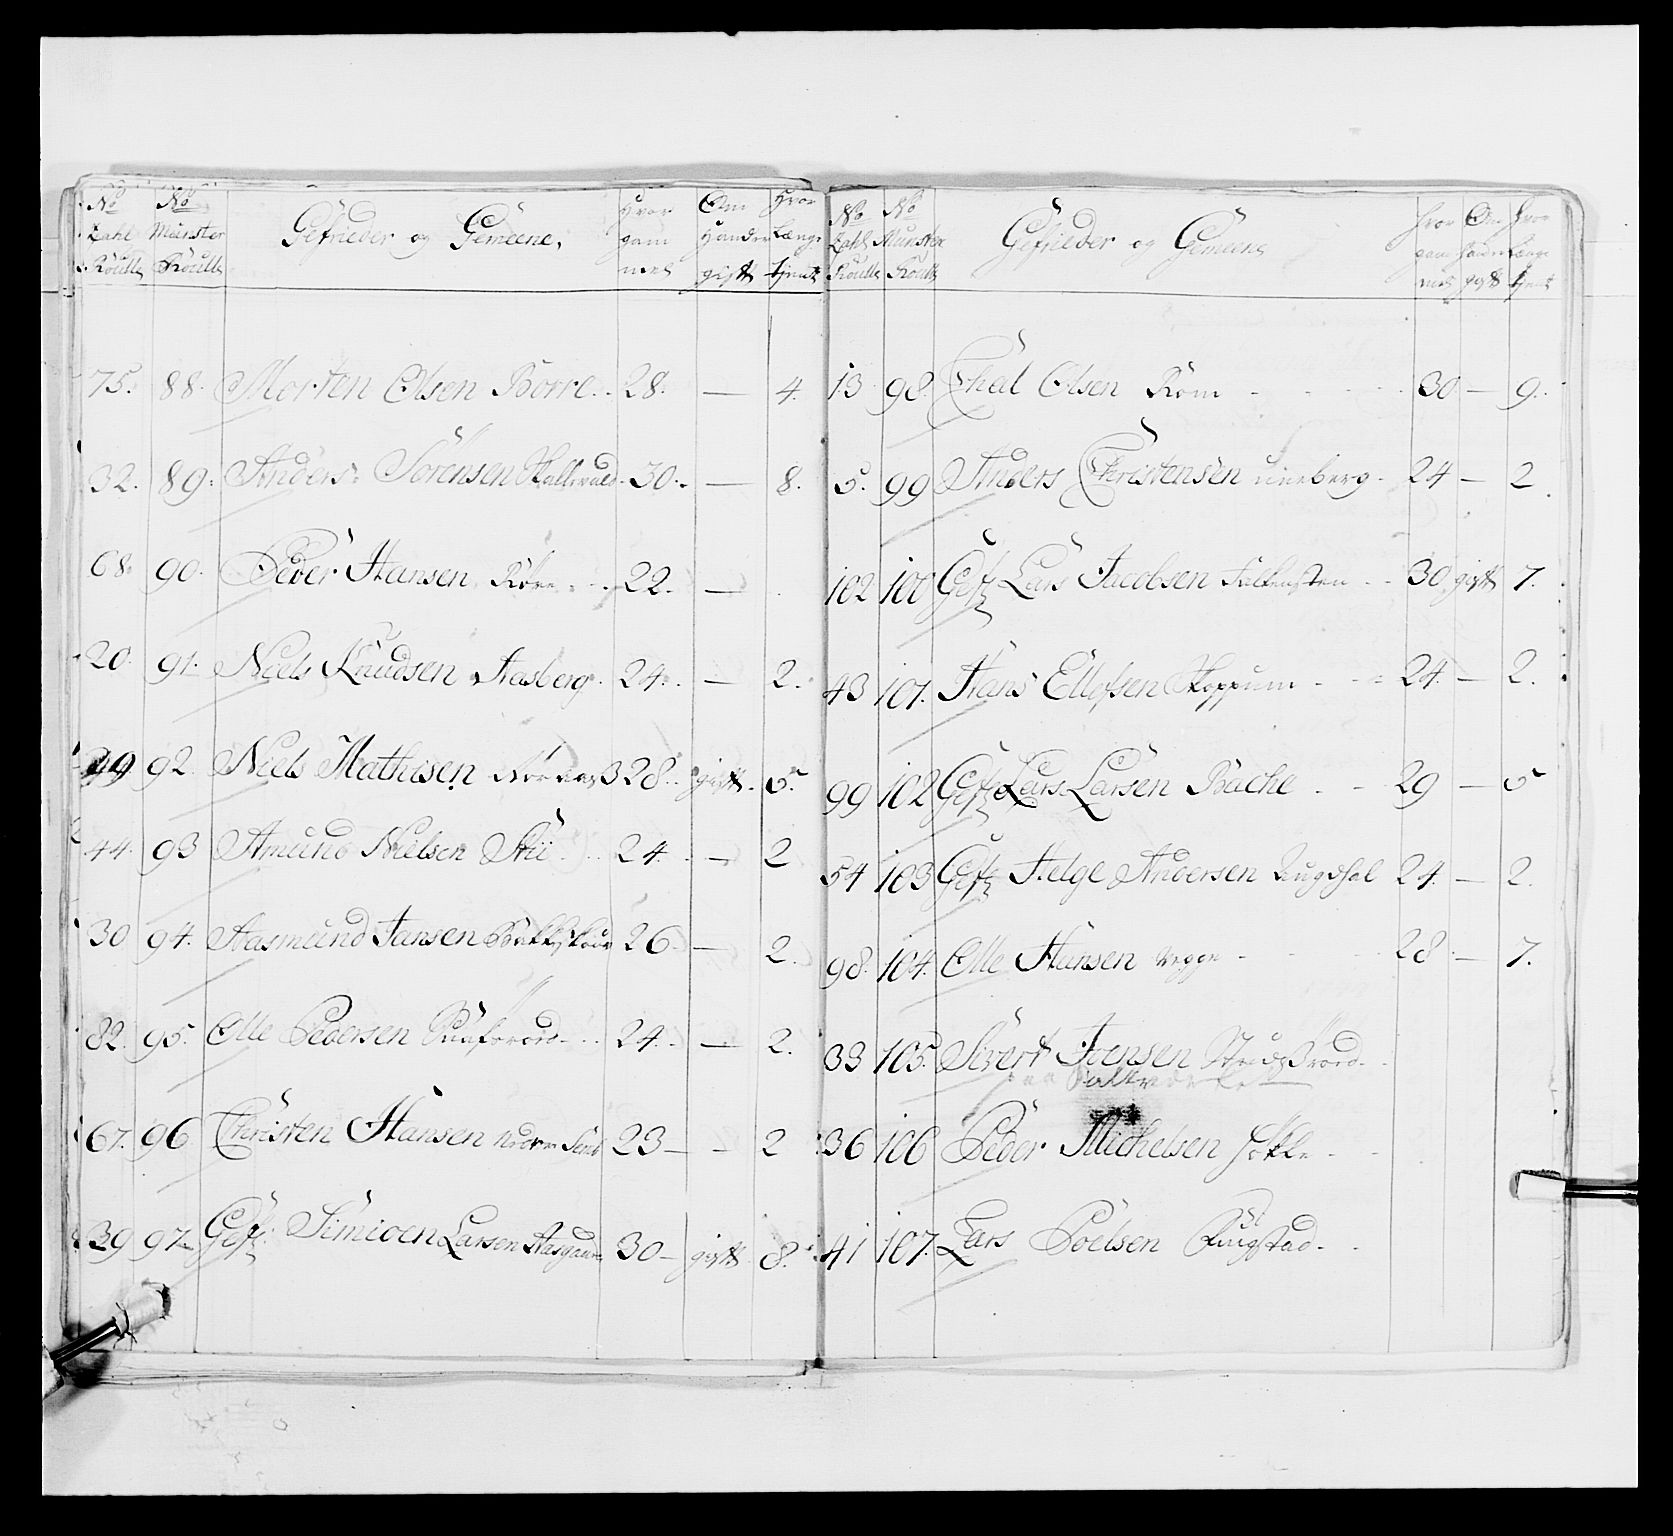 No Zahl Roulle No Münster Roulle Gefrieder og Gemeene, Hvor gammel Om Hand er gift Hvor Længe tient
75. 88. Morten Olsen Borre 28. — 4.
32. 89. Anders Sörensen 30. — 8.
68. 90. Peder Hansen Röre 22. —
20. 91. Niels Knudsen Aasberg 24. — 2.
92. Niels Mathisen 28. gift. 5.
44. 93 Amund Nielsen Stii 24. — 2
30 94. Aasmund Jansen 26 — 2.
82. 95. Olle Pedersen 24. — 2.
67. 96 Christen Hansen 23 — — 2
39 97. Gef: Simioen Larsen Aasgaar 30 — gift 8.
No Zahl Roulle No Münster Roulle Gefrieder og Gemeene Hvor gammel Om Hand er gift Hvor Længe tient
13 98. Thiel Olsen Röm 30 — 9.
5. 99 Anders Christensen Lineberg 24 — 2
102 100 Gef: Lars Jacobsen Falkensten 30. gift 7.
43 101. Hans Ellefsen Skoppum 24. — 2.
99 102 Gef: Lars Larsen Bache 29 — 5
54 103 Gef: Helge Andersen 24. — 2.
98. 104. Olle Hansen Vegge 28 — 7.
33 105. Sivert Joensen
36 106 Peder Michelsen
41 107. Lars Poelsen Rugstad